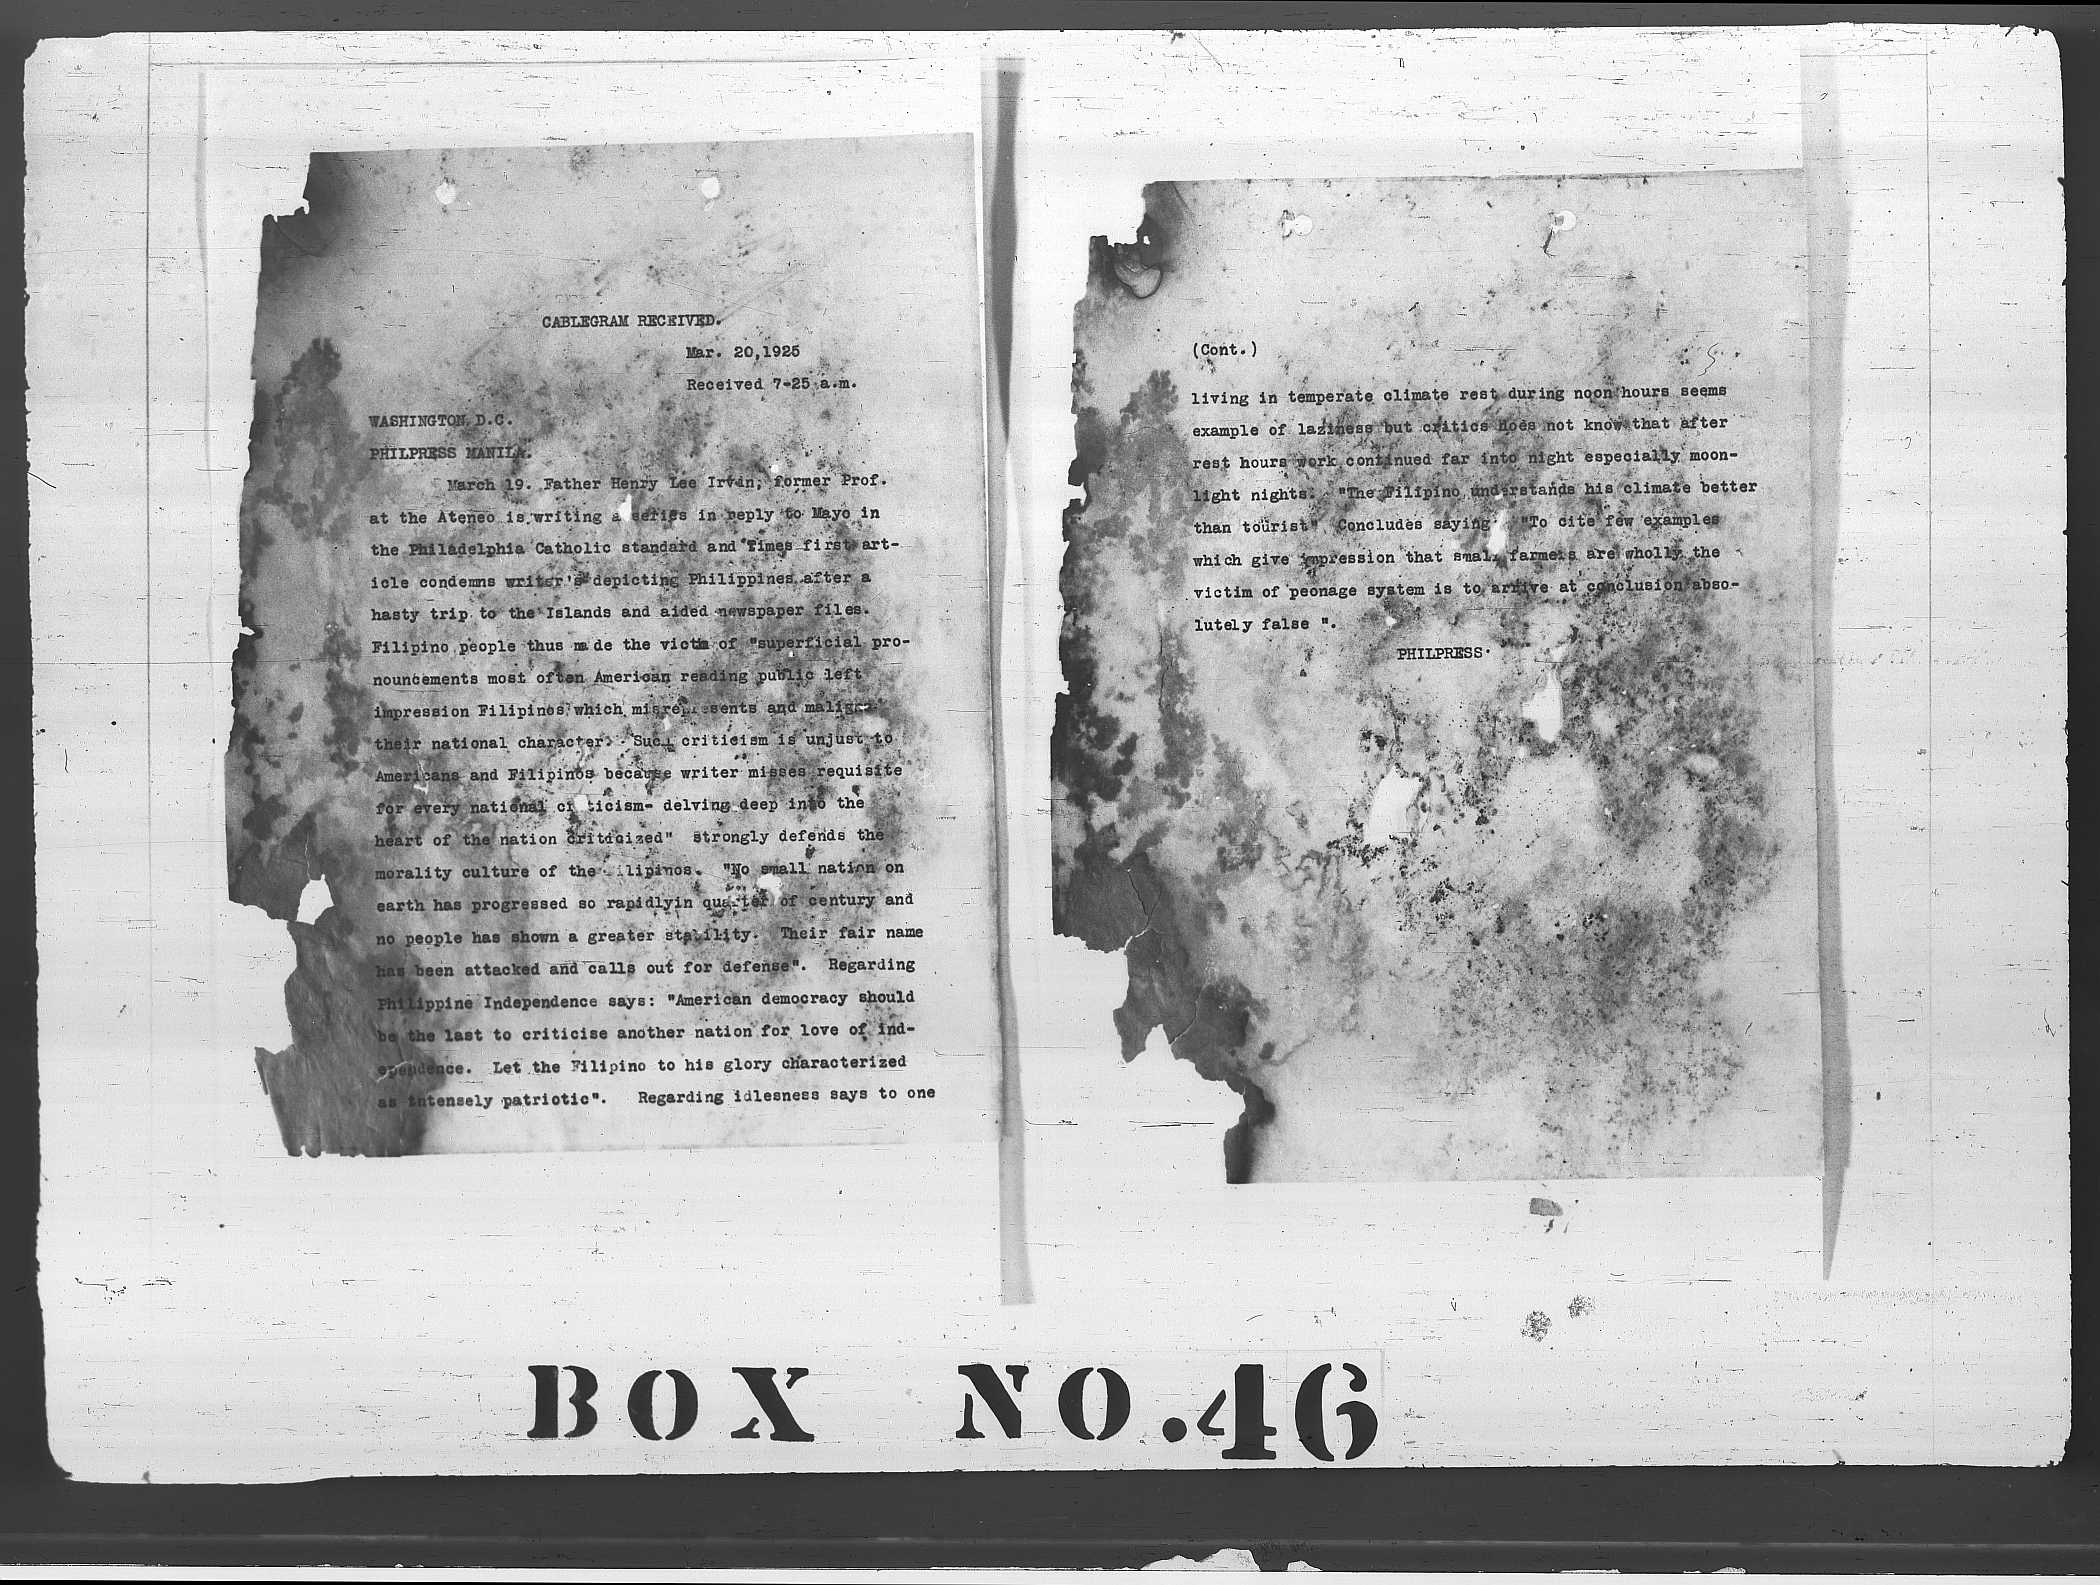 CABLEGRAM RECEIVED.
Mar. 20,1925
Received 7-25 a.m.
WASHINGTON, D.C.
PHILPRESS MANILA.
March 19. Father Henry Lee Irwin, former Prof.
at the Ateneo is writing a series in reply to Mayo in
the Philadelphia Catholic standard and Times first art-
icle condemns writer's depicting Philippines after a
hasty trip to the Islands and aided newspaper files.
Filipino people thus made the victm of "superficial pro-
nouncements most often American reading public left
impression Filipinos which misrepresents and maligns
their national character. Such criticism is unjust to
Americans and Filipinos because writer misses requisite
for every national criticism- delving deep into the
heart of the nation criticized" strongly defends the
morality culture of the Filipinos. "No small nation on
earth has progressed so rapidlyin quarter of century and
no people has shown a greater stability. Their fair name
has been attacked and calls out for defense". Regarding
Philippine Independence says: "American democracy should
be the last to criticise another nation for love of ind-
ependence. Let the Filipino to his glory characterized
as intensely patriotic". Regarding idlesness says to one
(Cont.)
living in temperate climate rest during noon hours seems
example of laziness but critics does not know that after
rest hours work continued far into night especially moon-
light nights. "The Filipino understands his climate better
than tourist" Concludes saying "To cite few examples
which give impression that small farmers are wholly the
victim of peonage system is to arrive at conclusion abso-
lutely false ".
PHILPRESS.
BOX NO.46